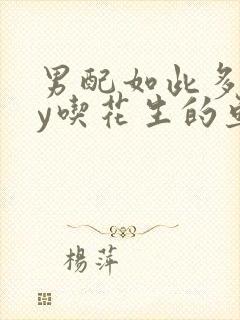 男配如此多
y喫花生的
楊萍